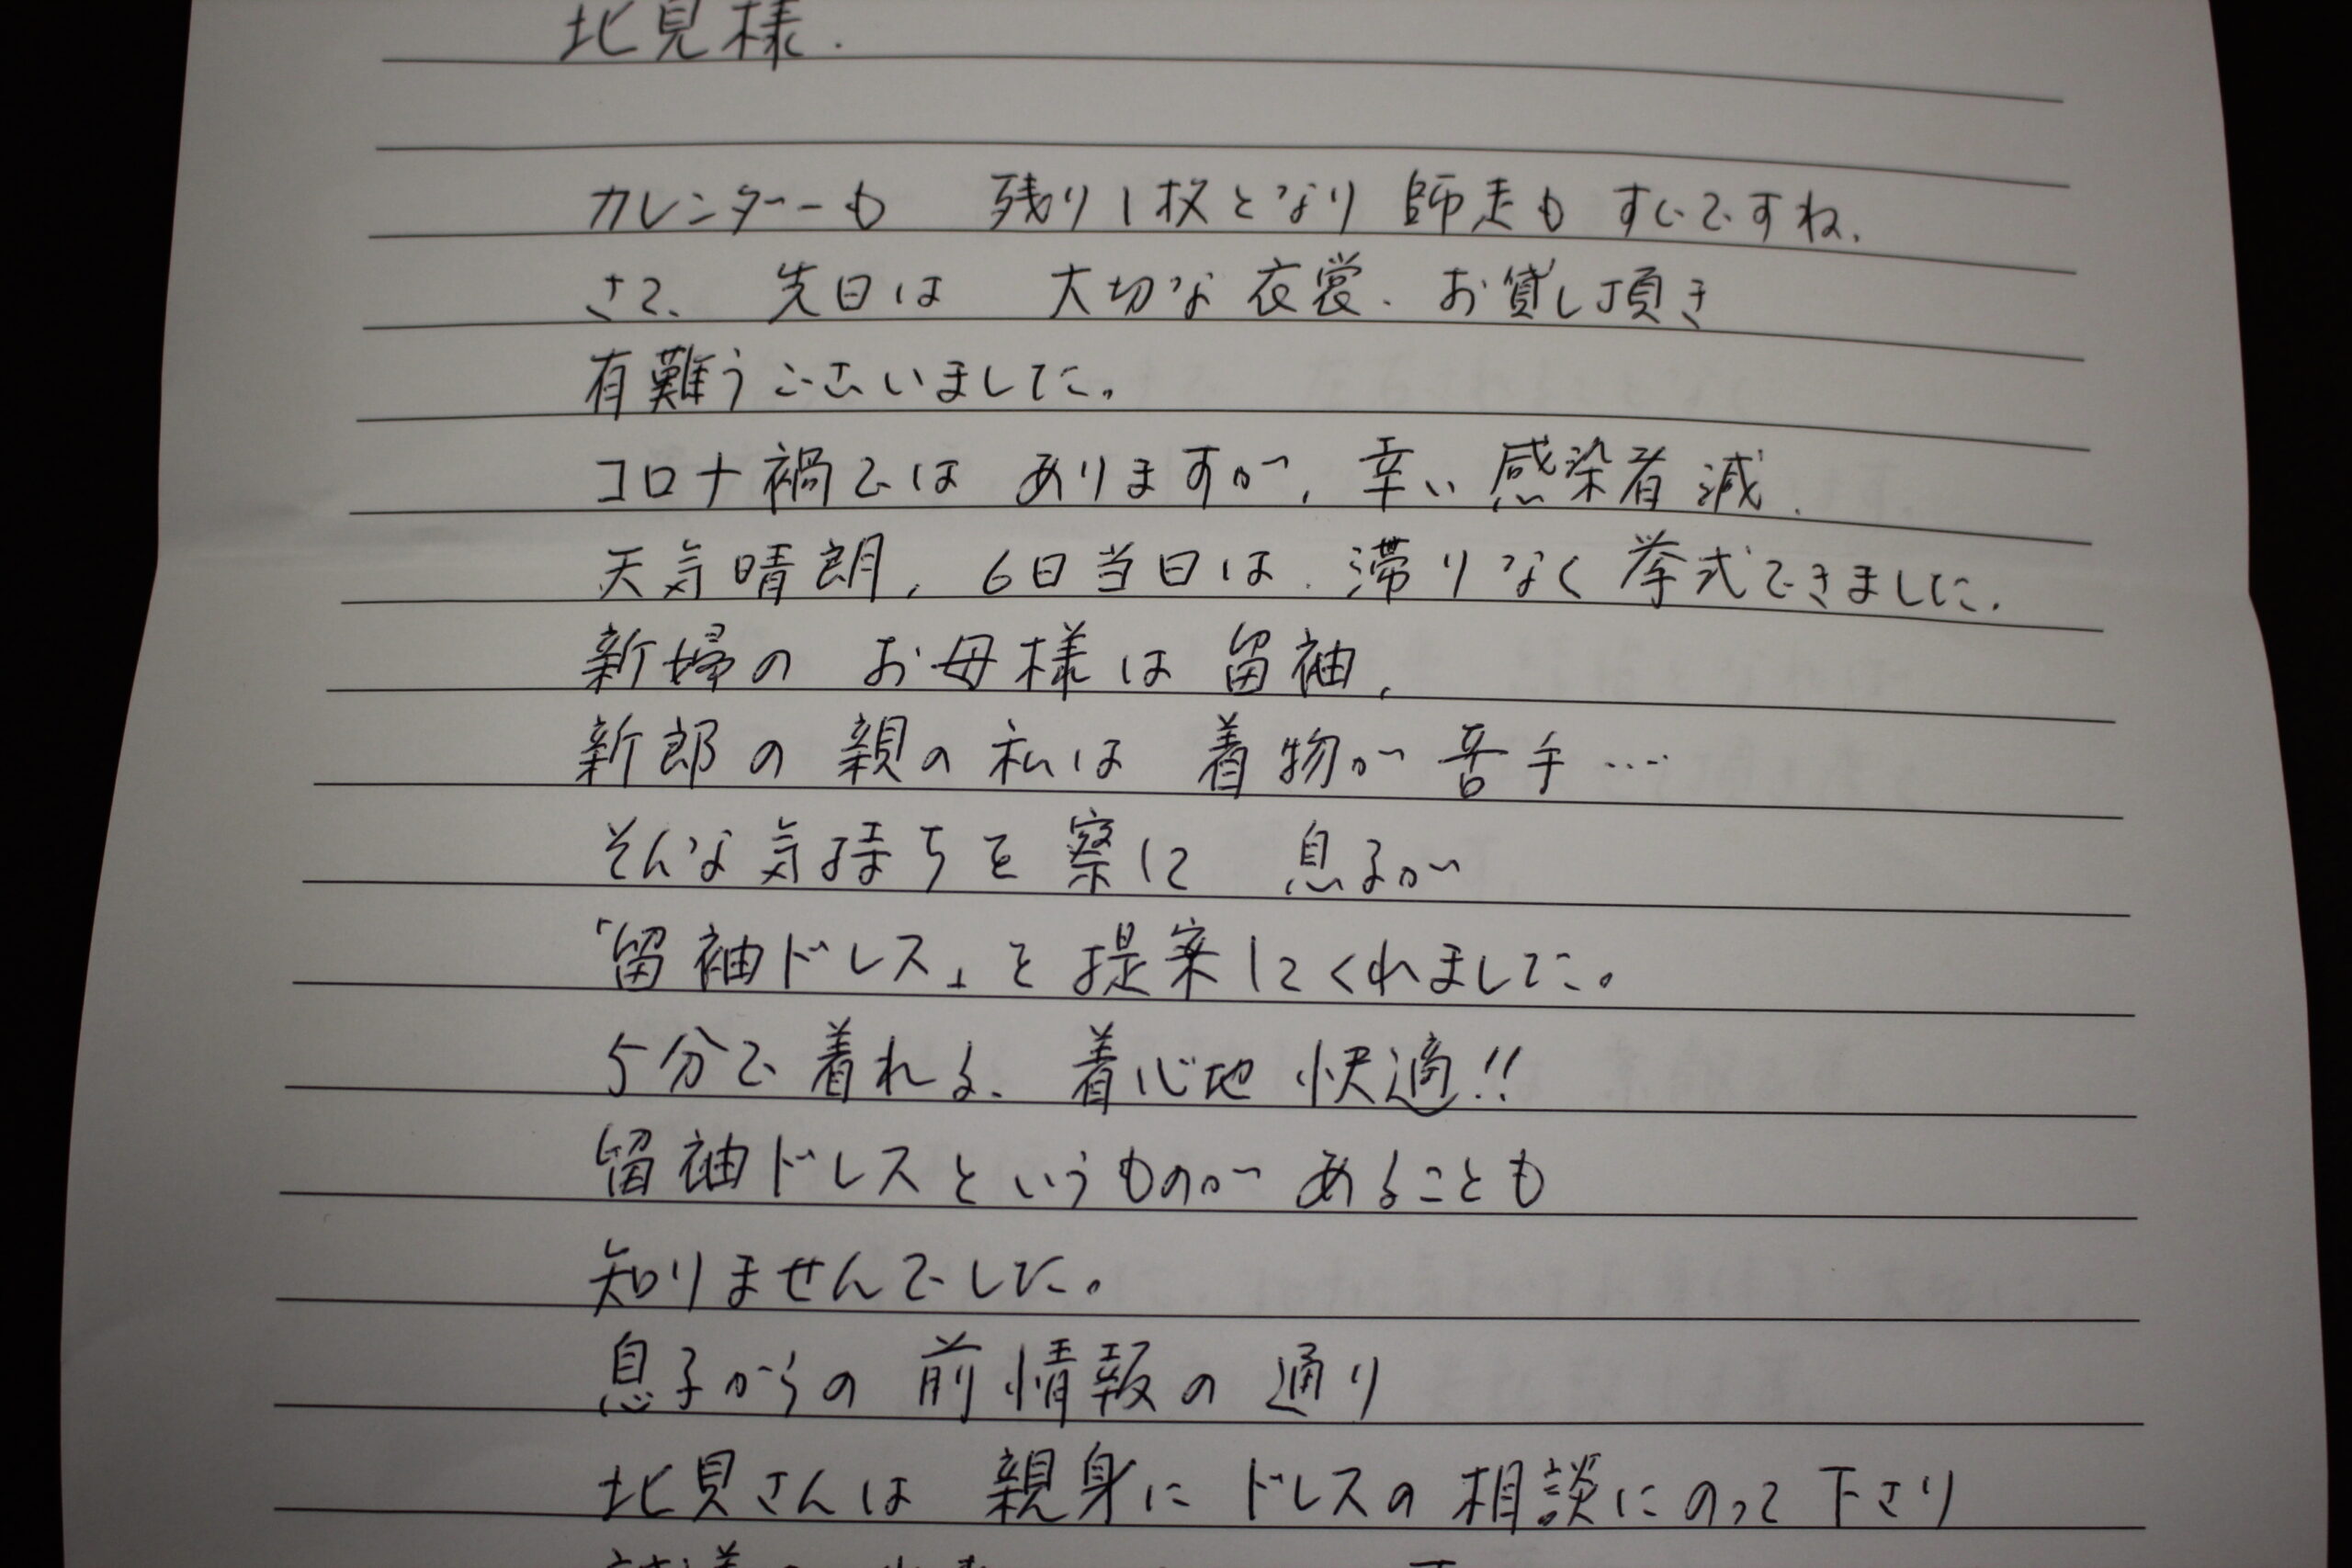 北見様.
カレンダーも 残り1枚となり 師走も すぐですね、
さて、 先日は 大切な衣裳、お貸し頂き
有難うございました。
コロナ禍では ありますが、幸い 感染者減、
天気晴朗、6日当日は、滞りなく挙式できました、
新婦の お母様は 留袖、
新郎の 親の 私は 着物が 苦手‥‥
そんな気持ちを 察して 息子が
「留袖ドレス」を 提案してくれました。
5分で 着れる、 着心地 快適!!
留袖ドレスというものが あることも
知りませんでした。
息子からの 前情報の 通り
北見さんは 親身に ドレスの 相談にのって 下さり